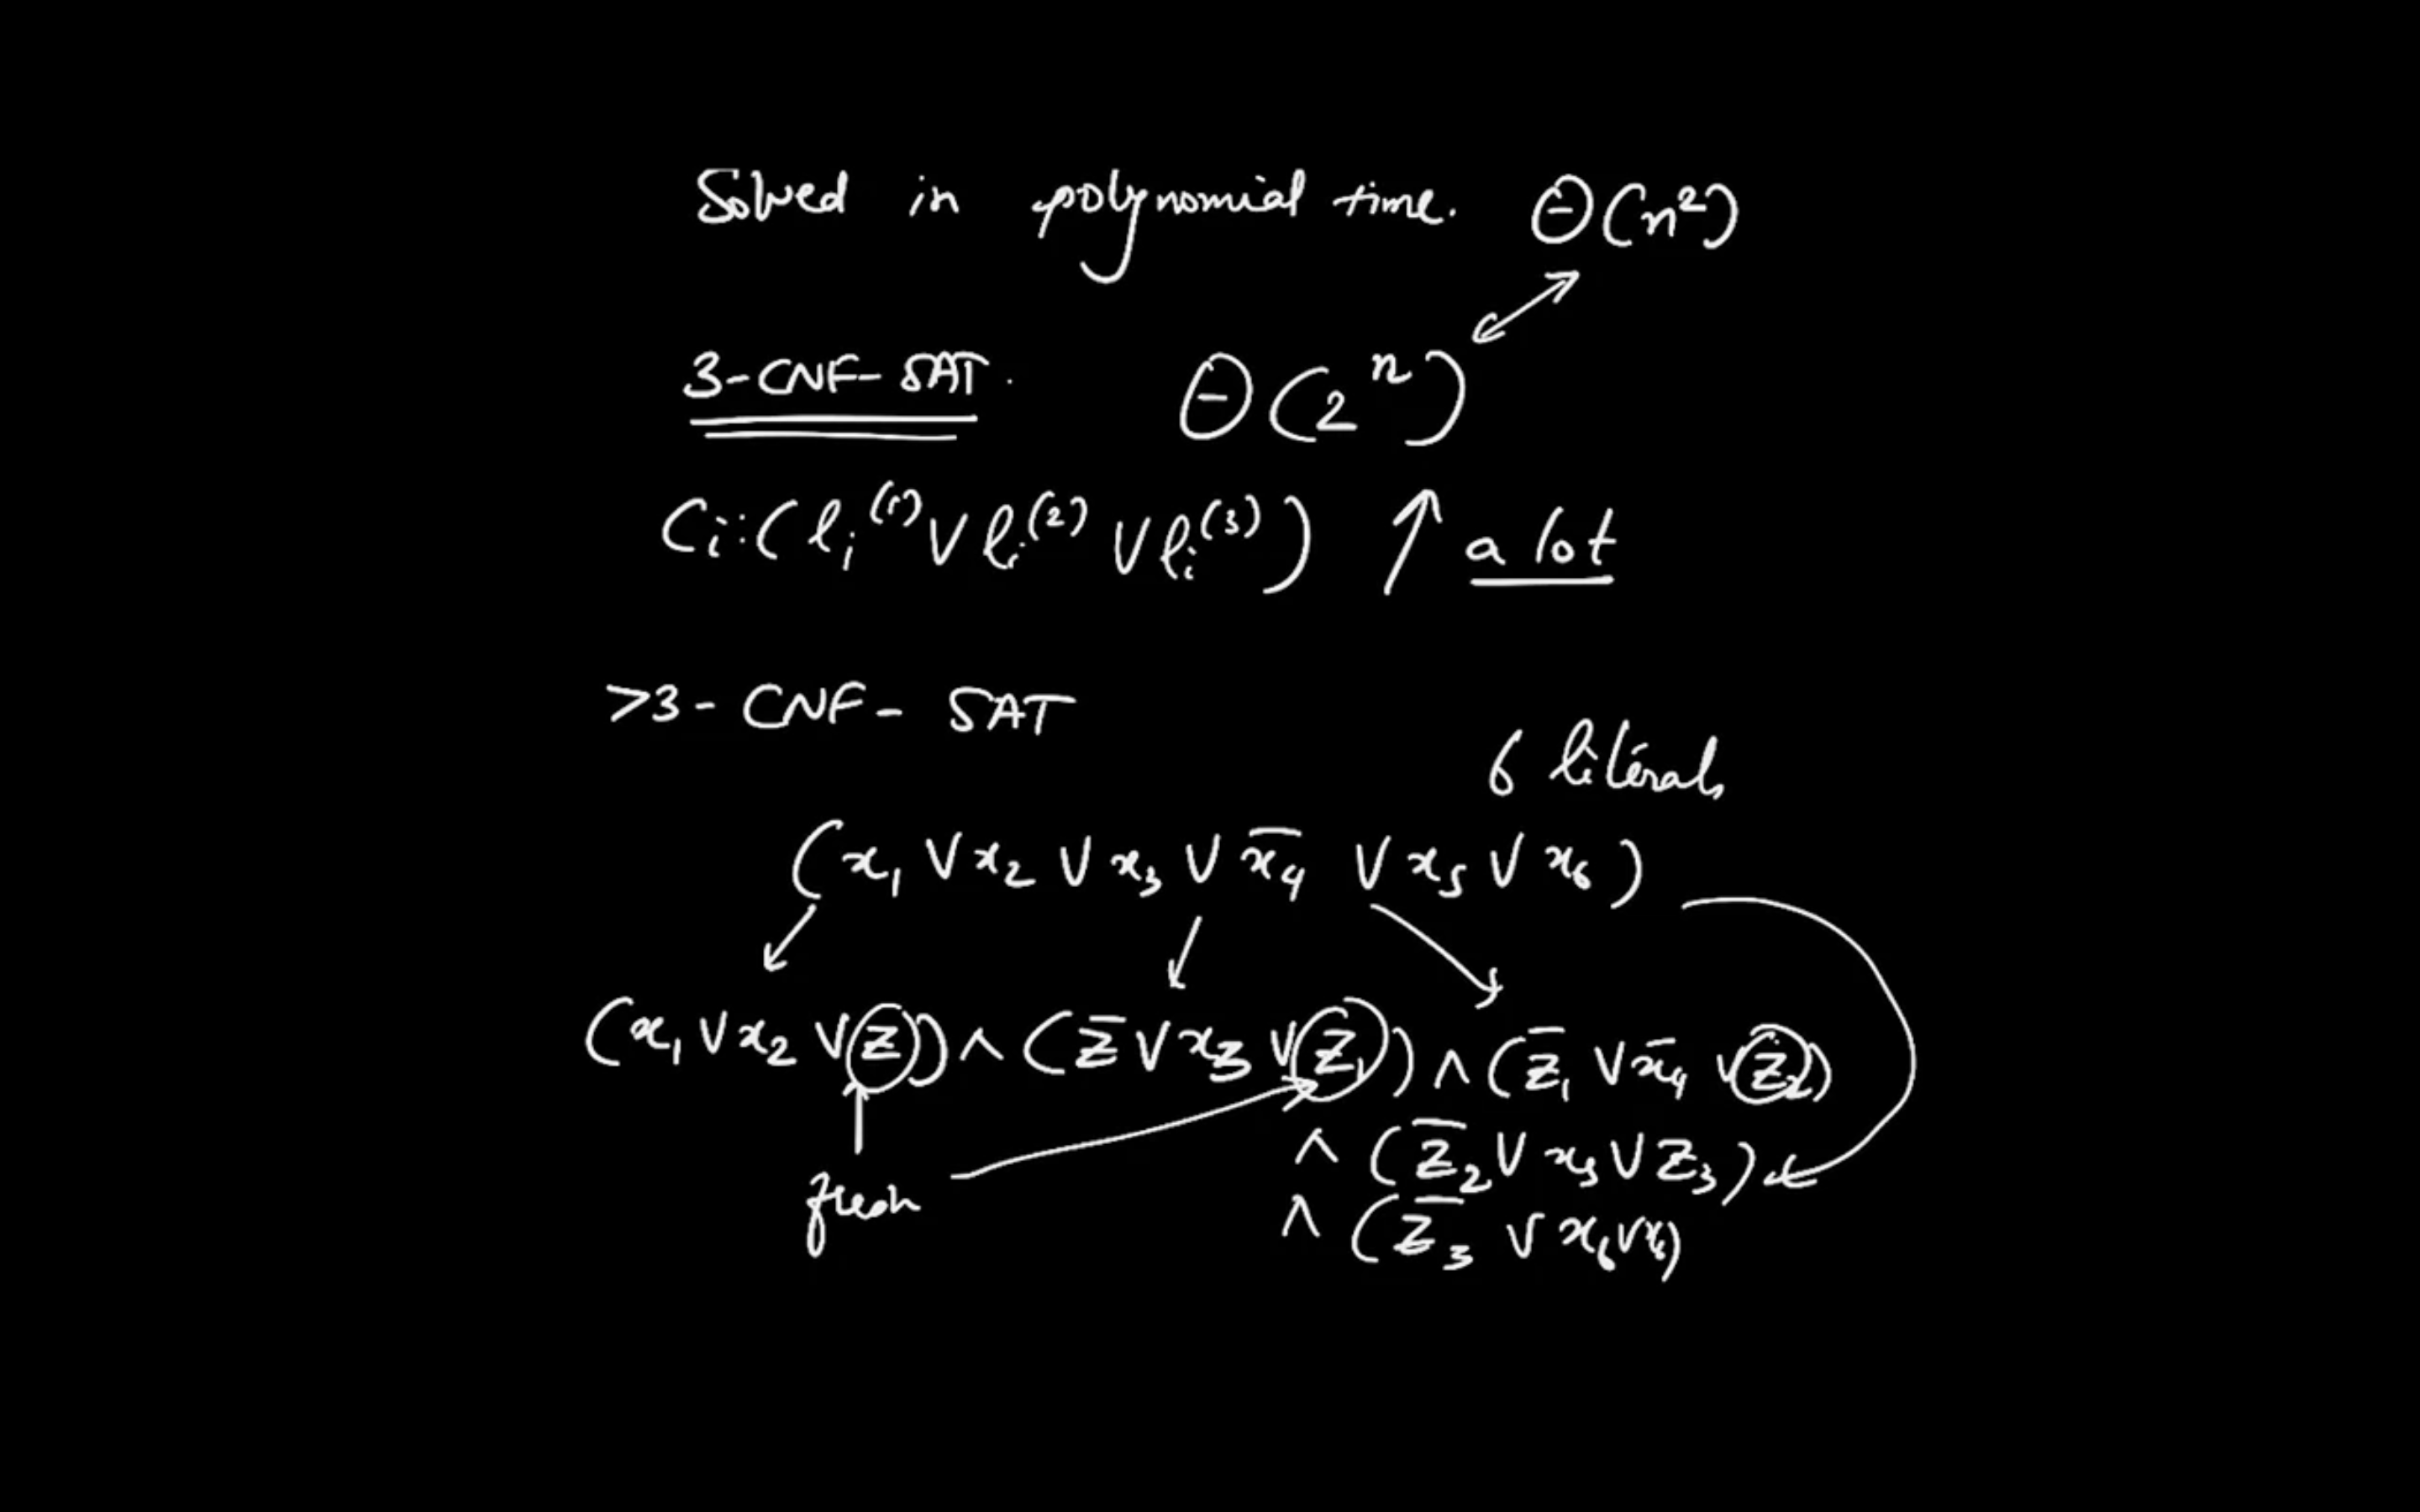 Solved in polynomial time. Θ(n²)
3-CNF-SAT. Θ(2ⁿ)
Cᵢ:(lᵢ⁽¹⁾ ∨ lᵢ⁽²⁾ ∨ lᵢ⁽³⁾) ↑ a lot
>3-CNF-SAT
6 literals
(x₁ ∨ x₂ ∨ x₃ ∨ x̄₄ ∨ x₅ ∨ x₆)
(x₁ ∨ x₂ ∨ z) ∧ (z̄ ∨ x₃ ∨ z₁) ∧ (z̄₁ ∨ x̄₄ ∨ z₂)
∧ (z̄₂ ∨ x₅ ∨ z₃)
fresh
∧ (z̄₃ ∨ x₆ ∨ x₆)